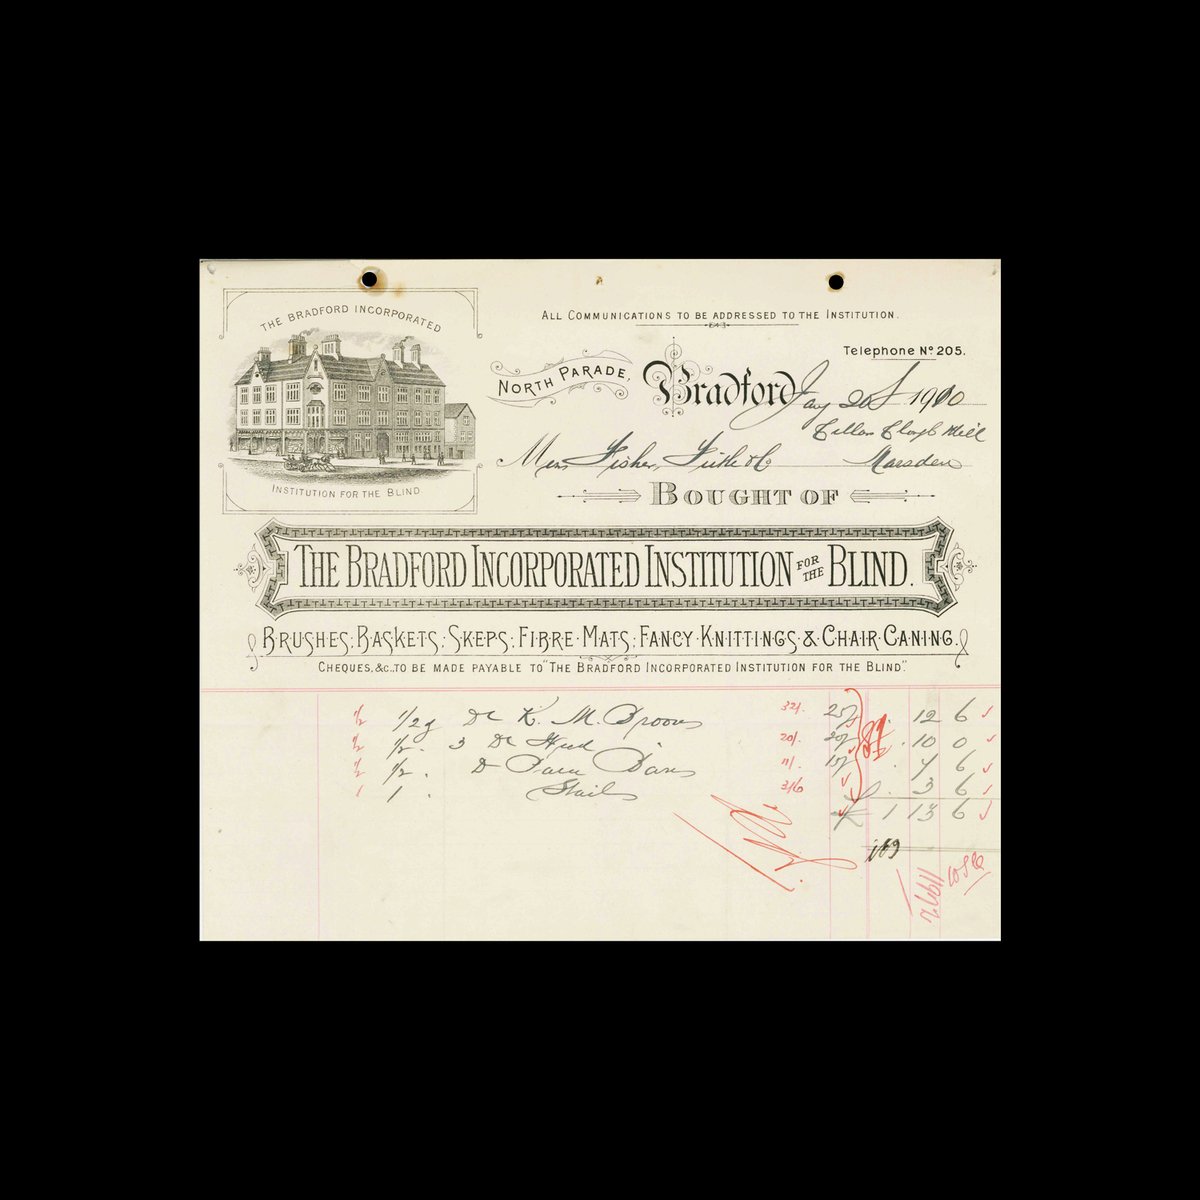 THE BRADFORD INCORPORATED
INSTITUTION FOR THE BLIND
ALL COMMUNICATIONS TO BE ADDRESSED TO THE INSTITUTION.
Telephone No. 205.
NORTH PARADE, Bradford Jany 20th 1900
Mess Fisher, Firth & Co Marsden
BOUGHT OF
THE BRADFORD INCORPORATED INSTITUTION FOR THE BLIND.
BRUSHES, BASKETS, SKEPS, FIBRE MATS, FANCY KNITTINGS & CHAIR CANING.
CHEQUES, &c., TO BE MADE PAYABLE TO "THE BRADFORD INCORPORATED INSTITUTION FOR THE BLIND".
1/2 1/2 g Dr K. M. Brooms 32/. 25/ 12 6
1/2 1/2 . 3 Dr 20/. 20/ . 10 0
1/2 1/2 . D 11/. 15/ . 7 6
1 1 . 3/6 . 3 6
1 13 6
169